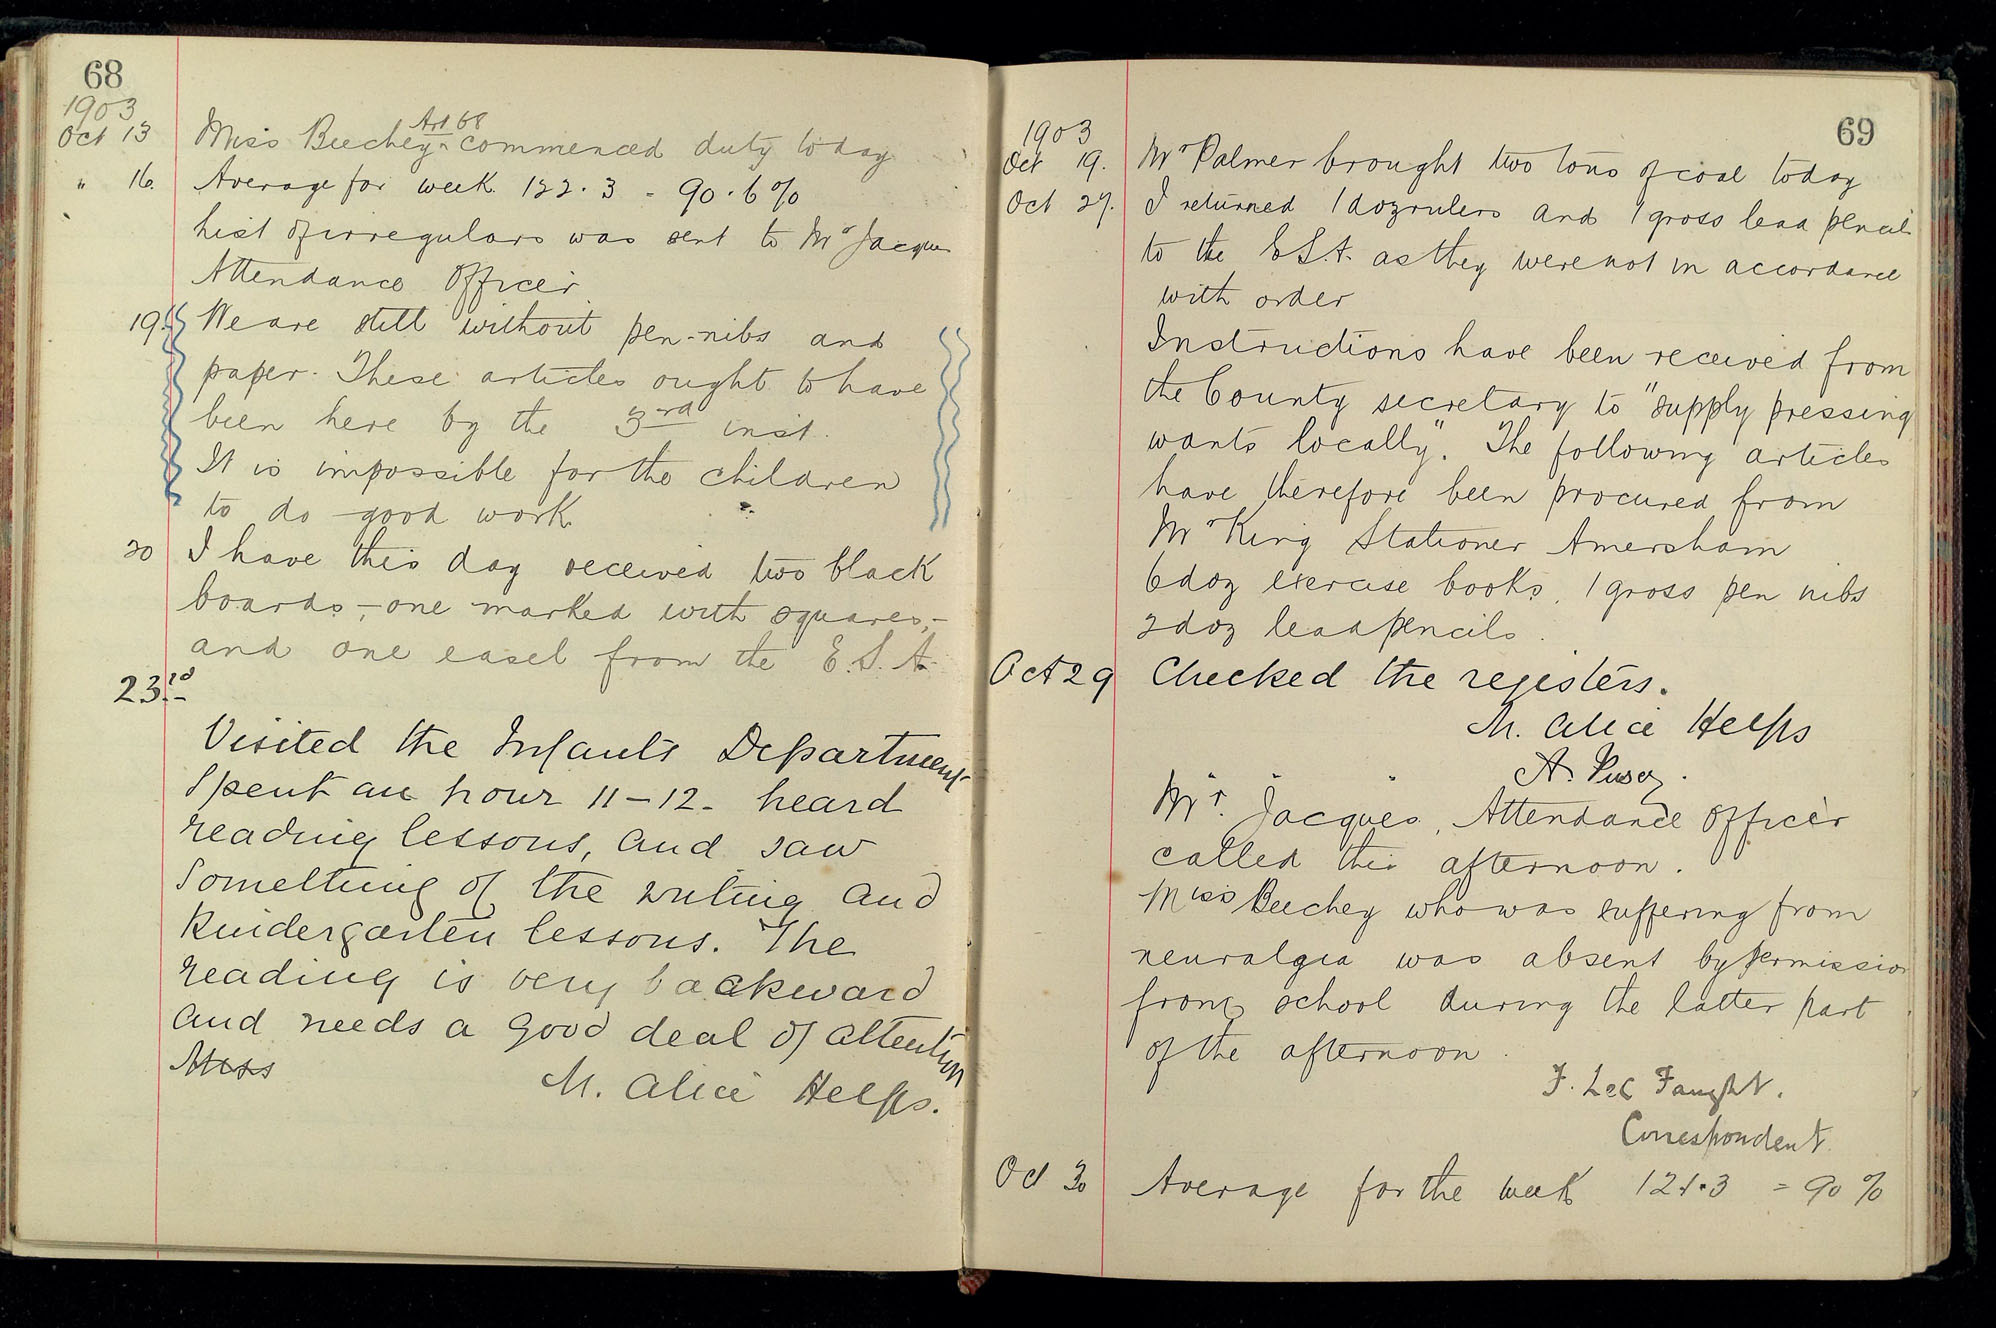 68
1903
Oct 13 Miss Beechey Art 68 commenced duty today
" 16. Average for week 122.3 = 90.6%
List of irregulars was sent to Mr Jacques
Attendance Officer
19. We are still without pen-nibs and
paper. These articles ought to have
been here by the 3rd inst.
It is impossible for the children
to do good work
20 I have this day received two black
boards,- one marked with squares,-
and one easel from the E.S.A.
23rd
Visited the Infants Department
Spent an hour 11-12. heard
reading lessons, and saw
Something of the writing and
Kindergarten lessons. The
reading is very backward
and needs a good deal of attention
Miss
M. Alice Helps.
69
1903
Oct 19. Mr Palmer brought two tons of coal today
Oct 27. I returned 1 doz rulers and 1 gross lead pencils
to the E.S.A. as they were not in accordance
with order
Instructions have been received from
the County secretary to "supply pressing
wants locally". The following articles
have therefore been procured from
Mr King Stationer Amersham
6 doz exercise books, 1 gross pen nibs
2 doz lead pencils.
Oct 29 Checked the registers.
M. Alice Helps
A. Pusey.
Mr. Jacques, Attendance Officer
called this afternoon.
Miss Beechey who was suffering from
neuralgia was absent by permission
from school during the latter part
of the afternoon.
F. LeC Faught.
Correspondent
Oct 30 Average for the week 121.3 = 90%